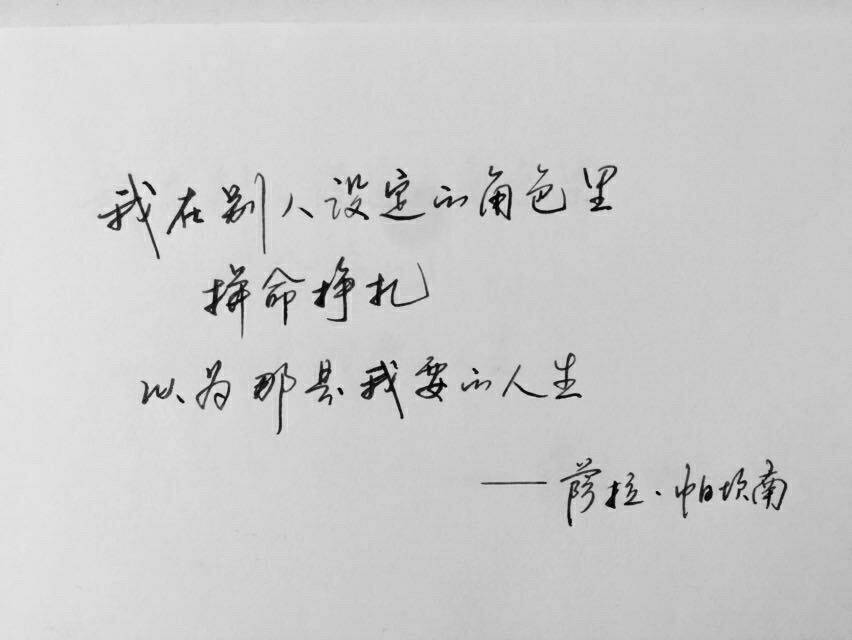 我在别人设定的角色里
拼命挣扎
以为那是我要的人生
——萨拉·帕坎南